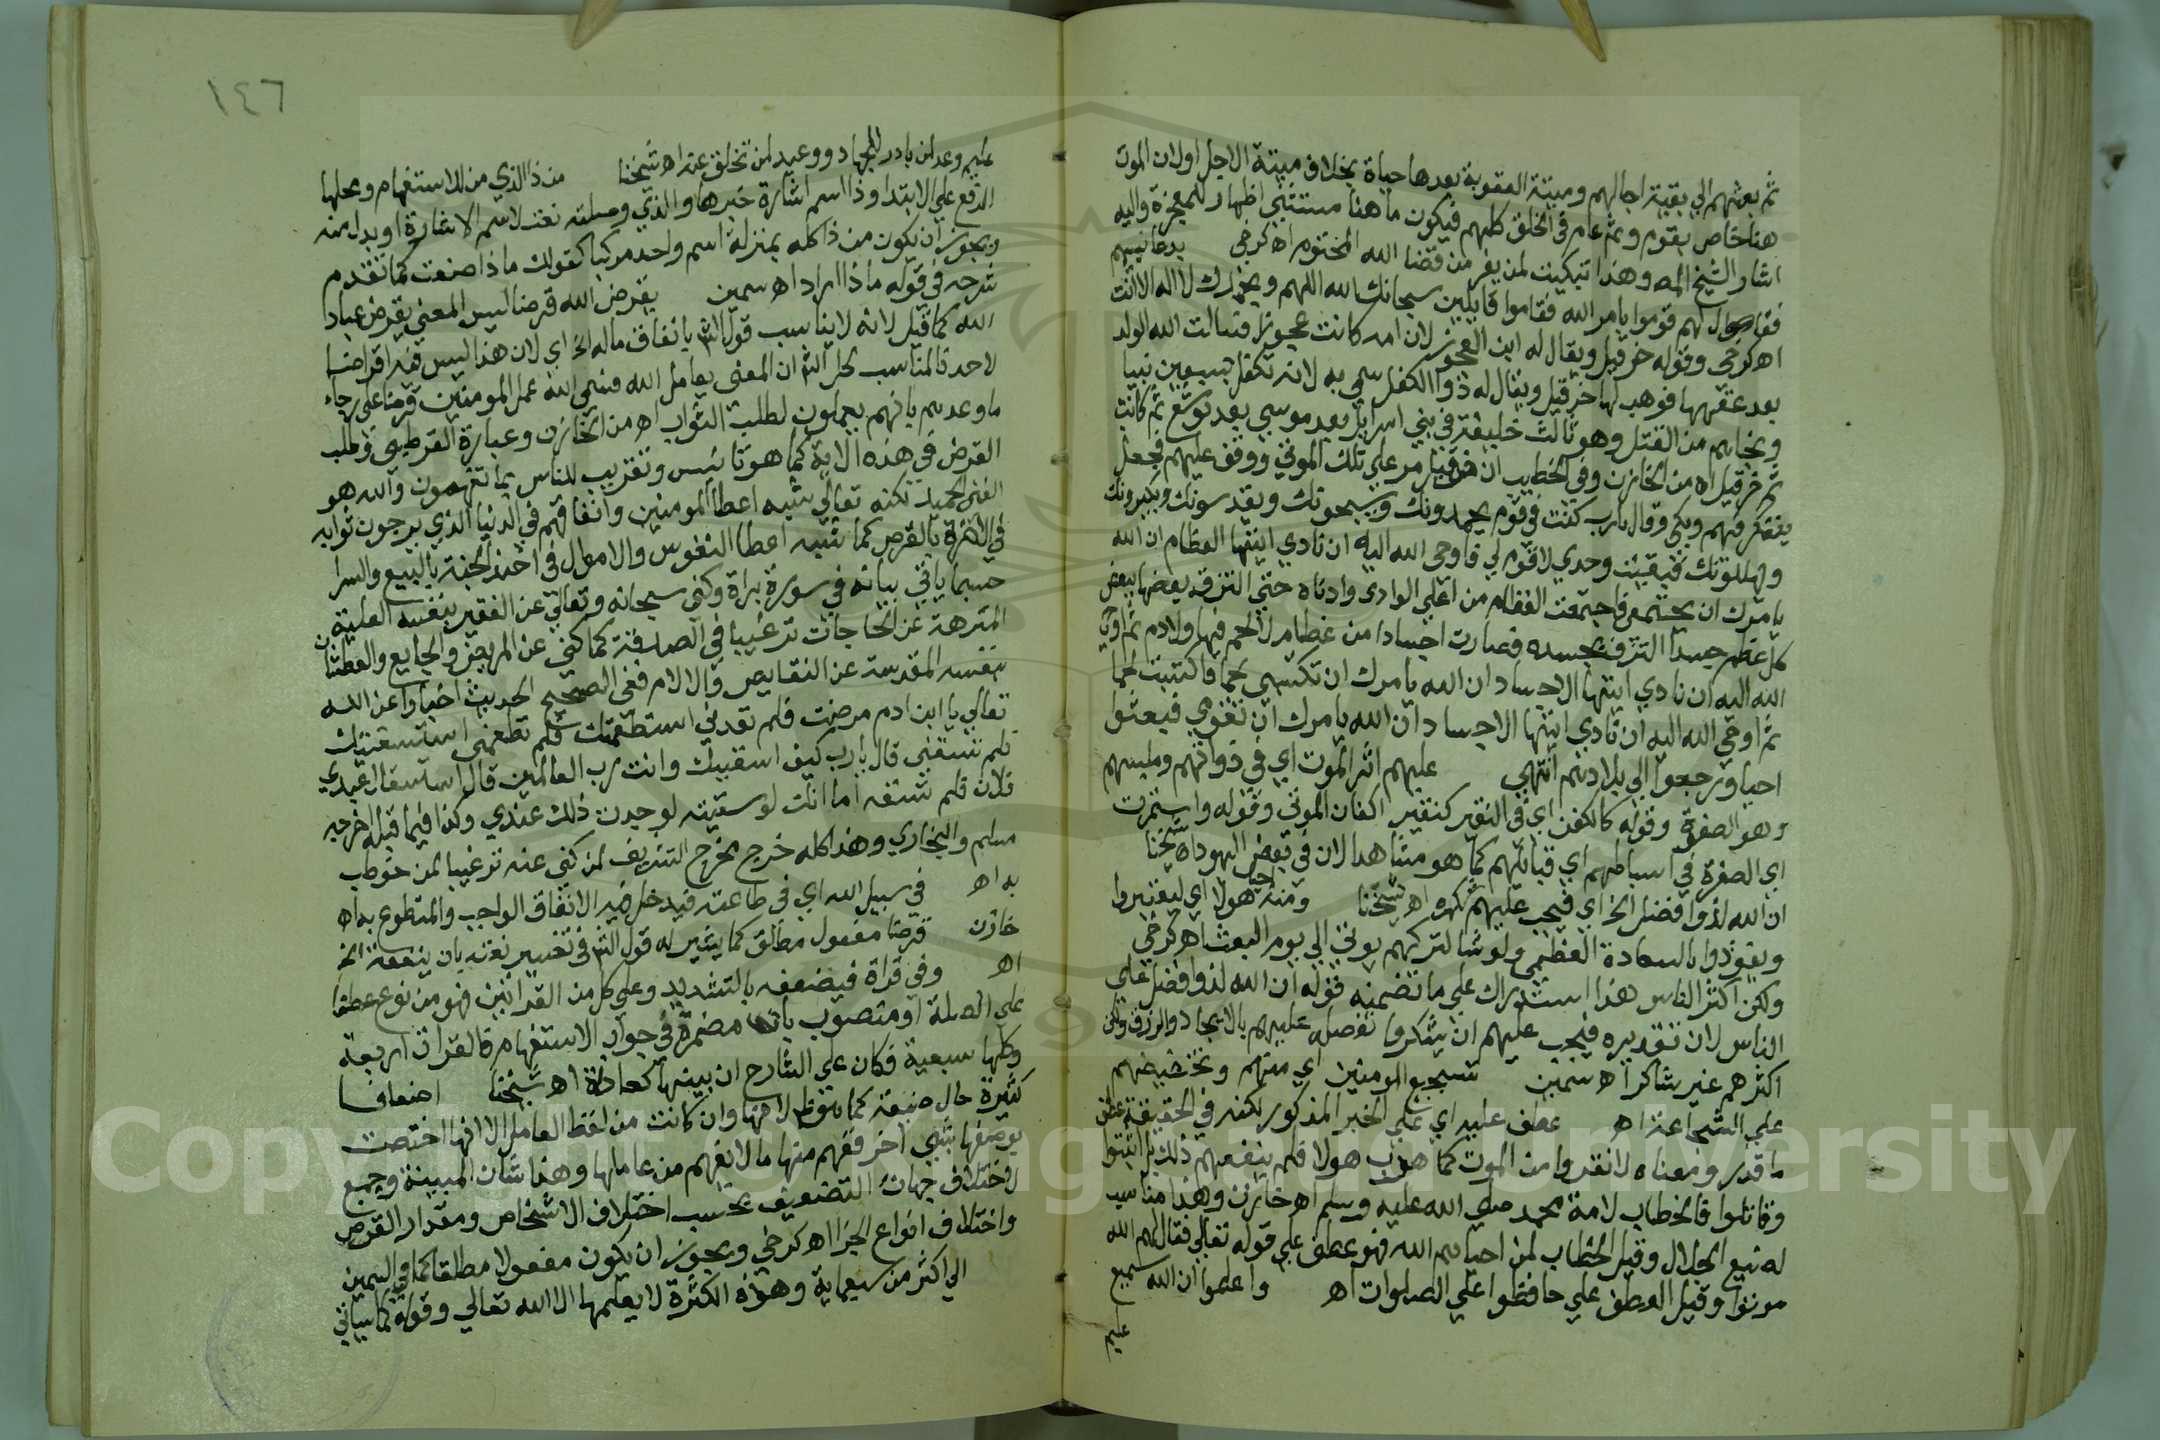 ثم بعثهم الي بقية اجالهم وميتة العقوبة بعدها حياة بخلاف ميتة الاجل اولان الموت
هنا خاص بقوم وثم عام في الخلق كلهم فيكون ما هنا مستثني اظهار للمعجزة واليه
اشار الشيخ المص وهذا تبكيت لمن يفر من قضا الله المحتوم اه كرخي بدعا نبيهم
فقال لهم قوموا بامر الله فقاموا قايلين سبحانك الله اللهم وبحمدك لا اله الا انت
اه كرخي وقوله حزقيل ويقال له ابن العجوز لان امه كانت عجوزا فسالت الله الولد
بعد عقمها فوهب لها حزقيل ويقال له ذو الكفل سمي به لانه تكفل سبعين نبيا
ونجاهم من القتل وهو ثالث خليفة في بني اسرايل بعد موسي بعد يوشع ثم كالب
ثم حزقيل اه من الخازن وفي الخطيب ان حزقيل مر علي تلك الموتي ووقف عليهم فجعل
يتفكر فيهم وبكي وقال يارب كنت في قوم يحمدونك ويسبحونك ويقدسونك ويكبرونك
ويهللونك فبقيت وحدي لا قوم لي فاوحي الله اليه ان نادي ايتها العظام ان الله
يامرك ان تجتمعي فاجتمعت العظام من اعلي الوادي وادناه حتي التزق بعضها ببعض
كل عظم جسدا التزق بجسده فصارت اجسادا من عظام لا لحم فيها ولا دم ثم اوحي
الله اليه ان نادي ايتها الاجساد ان الله يامرك ان تكتسي لحما فاكتست لحما
ثم اوحي الله اليه ان نادي ايتها الاجساد ان الله يامرك ان تقومي فبعثوا
احيا ورجعوا الي بلادهم انتهي عليهم اثر الموت اي في ذواتهم وملبسهم
وهو الصفرة وقوله كالكفن اي في التغير كتغير اكفان الموتي وقوله واستمرت
اي الصفرة في اسباطهم اي قبائلهم كما هو مشاهد الان في بعض اليهود اه شيخنا
ان الله لذوا فضل الخ اي فيجب عليهم شكره اه شيخنا ومنه احيا هولا اي ليعتبروا
ويفوزوا بالسعادة العظمي ولو شا لتركهم موتي الي يوم البعث اه كرخي
ولكن اكثر الناس هذا استدراك علي ما تضمنه قوله ان الله لذوا فضل علي
الناس لان تقديره فيجب عليهم ان يشكروا تفضله عليهم بالايجاد والرزق ولكن
اكثرهم غير شاكر اه سمين تشجيع المومنين اي منهم وتحضيضهم
علي الشجاعة اه عطف عليه اي علي الخبر المذكور لكنه في الحقيقة عطف
ما قدر ومعناه لا تفروا من الموت كما هرب هولا فلم ينفعهم ذلك بل اثبتوا
وقاتلوا فالخطاب لامة محمد صلي الله عليه وسلم اه خازن وهذا مناسب
له تبع الجلال وقيل الخطاب لمن احياهم الله فهو عطف علي قوله تعالي فقال لهم الله
موتوا وقيل العطف علي حافظوا علي الصلوات اه واعلموا ان الله سميع
عليم
١٤٦
عليم وعد لمن بادر للجهاد ووعيد لمن تخلف عنه اه شيخنا من ذا الذي من للاستفهام ومحلها
الرفع علي الابتدا وذا اسم اشارة خبرها والذي وصلته نعت لاسم الاشارة او بدل منه
ويجوز ان يكون من ذا كله بمنزلة اسم واحد مركبا كقولك ماذا صنعت كما تقدم
شرحه في قوله ماذا اراد اه سمين يقرض الله قرضا ليس المعني يقرض عباد
الله كما قيل لانه لا يناسب قول الش بانفاق ماله الخ اي لان هذا ليس فيه اقراضا
لاحد فالمناسب لحل الش ان المعني يعامل الله فسمي الله عمل المومنين قرضا علي رجاء
ما وعدهم بانهم يعملون لطلب الثواب اه من الخازن وعبارة القرطبي وطلب
القرض في هذه الاية كما هو تانيس وتقريب للناس بما تفهمون والله هو
الغني الحميد لكنه تعالي شبه اعطا المومنين وانفاقهم في الدنيا الذي يرجون ثوابه
في الاخرة بالقرض كما شبه اعطا النفوس والاموال في اخذ الجنة بالبيع والشرا
حسبما ياتي بيانه في سورة براة وكني سبحانه وتعالي عن الفقير بنفسه العلية
المنزهة عن الحاجات ترغيبا في الصدقة كما كني عن المريض والجايع والعطشان
بنفسه المقدسة عن النقايص والالام ففي الصحيح الحديث اخبارا عن الله
تعالي يا ابن ادم مرضت فلم تعدني استطعمتك فلم تطعمني استسقيتك
فلم تسقني قال يارب كيف اسقيك وانت رب العالمين قال استسقاك عبدي
فلان فلم تسقه اما انك لو سقيته لوجدت ذلك عندي وكذا فيما قبله اخرجه
مسلم والبخاري وهذا كله خرج مخرج التشريف لمن كني عنه ترغيبا لمن خوطب
به اه في سبيل الله اي في طاعته فيدخل فيه الانفاق الواجب والمتطوع به اه
خازن قرضا مفعول مطلق كما يشير له قول الش في تفسير نعته بان ينفقه الخ
اه وفي قراة فيضعفه بالتشديد وعلي كل من القراتين فهو مرفوع عطفا
علي الصلة او منصوب بان مضمرة في جواب الاستفهام فالقرات اربعة
وكلها سبعية فكان علي الشارح ان يبينها كعادته اه شيخنا اضعافا
كثيرة حال مبينة كما لانها وان كانت من لفظ العامل الا انها اختصت
بوصفها بشي اخر ففهم منها ما لا يفهم من عاملها وهذا شان المبينة وجمع
لاختلاف جهات التضعيف بحسب اختلاف الاشخاص ومقدار القرض
واختلاف انواع الجزا اه كرخي ويجوز ان يكون مفعولا مطلقا كما في السمين
الي اكثر من سبعماية وهذه الكثرة لا يعلمها الا الله تعالي وقوله كما سياتي
Copyright © King Saud University